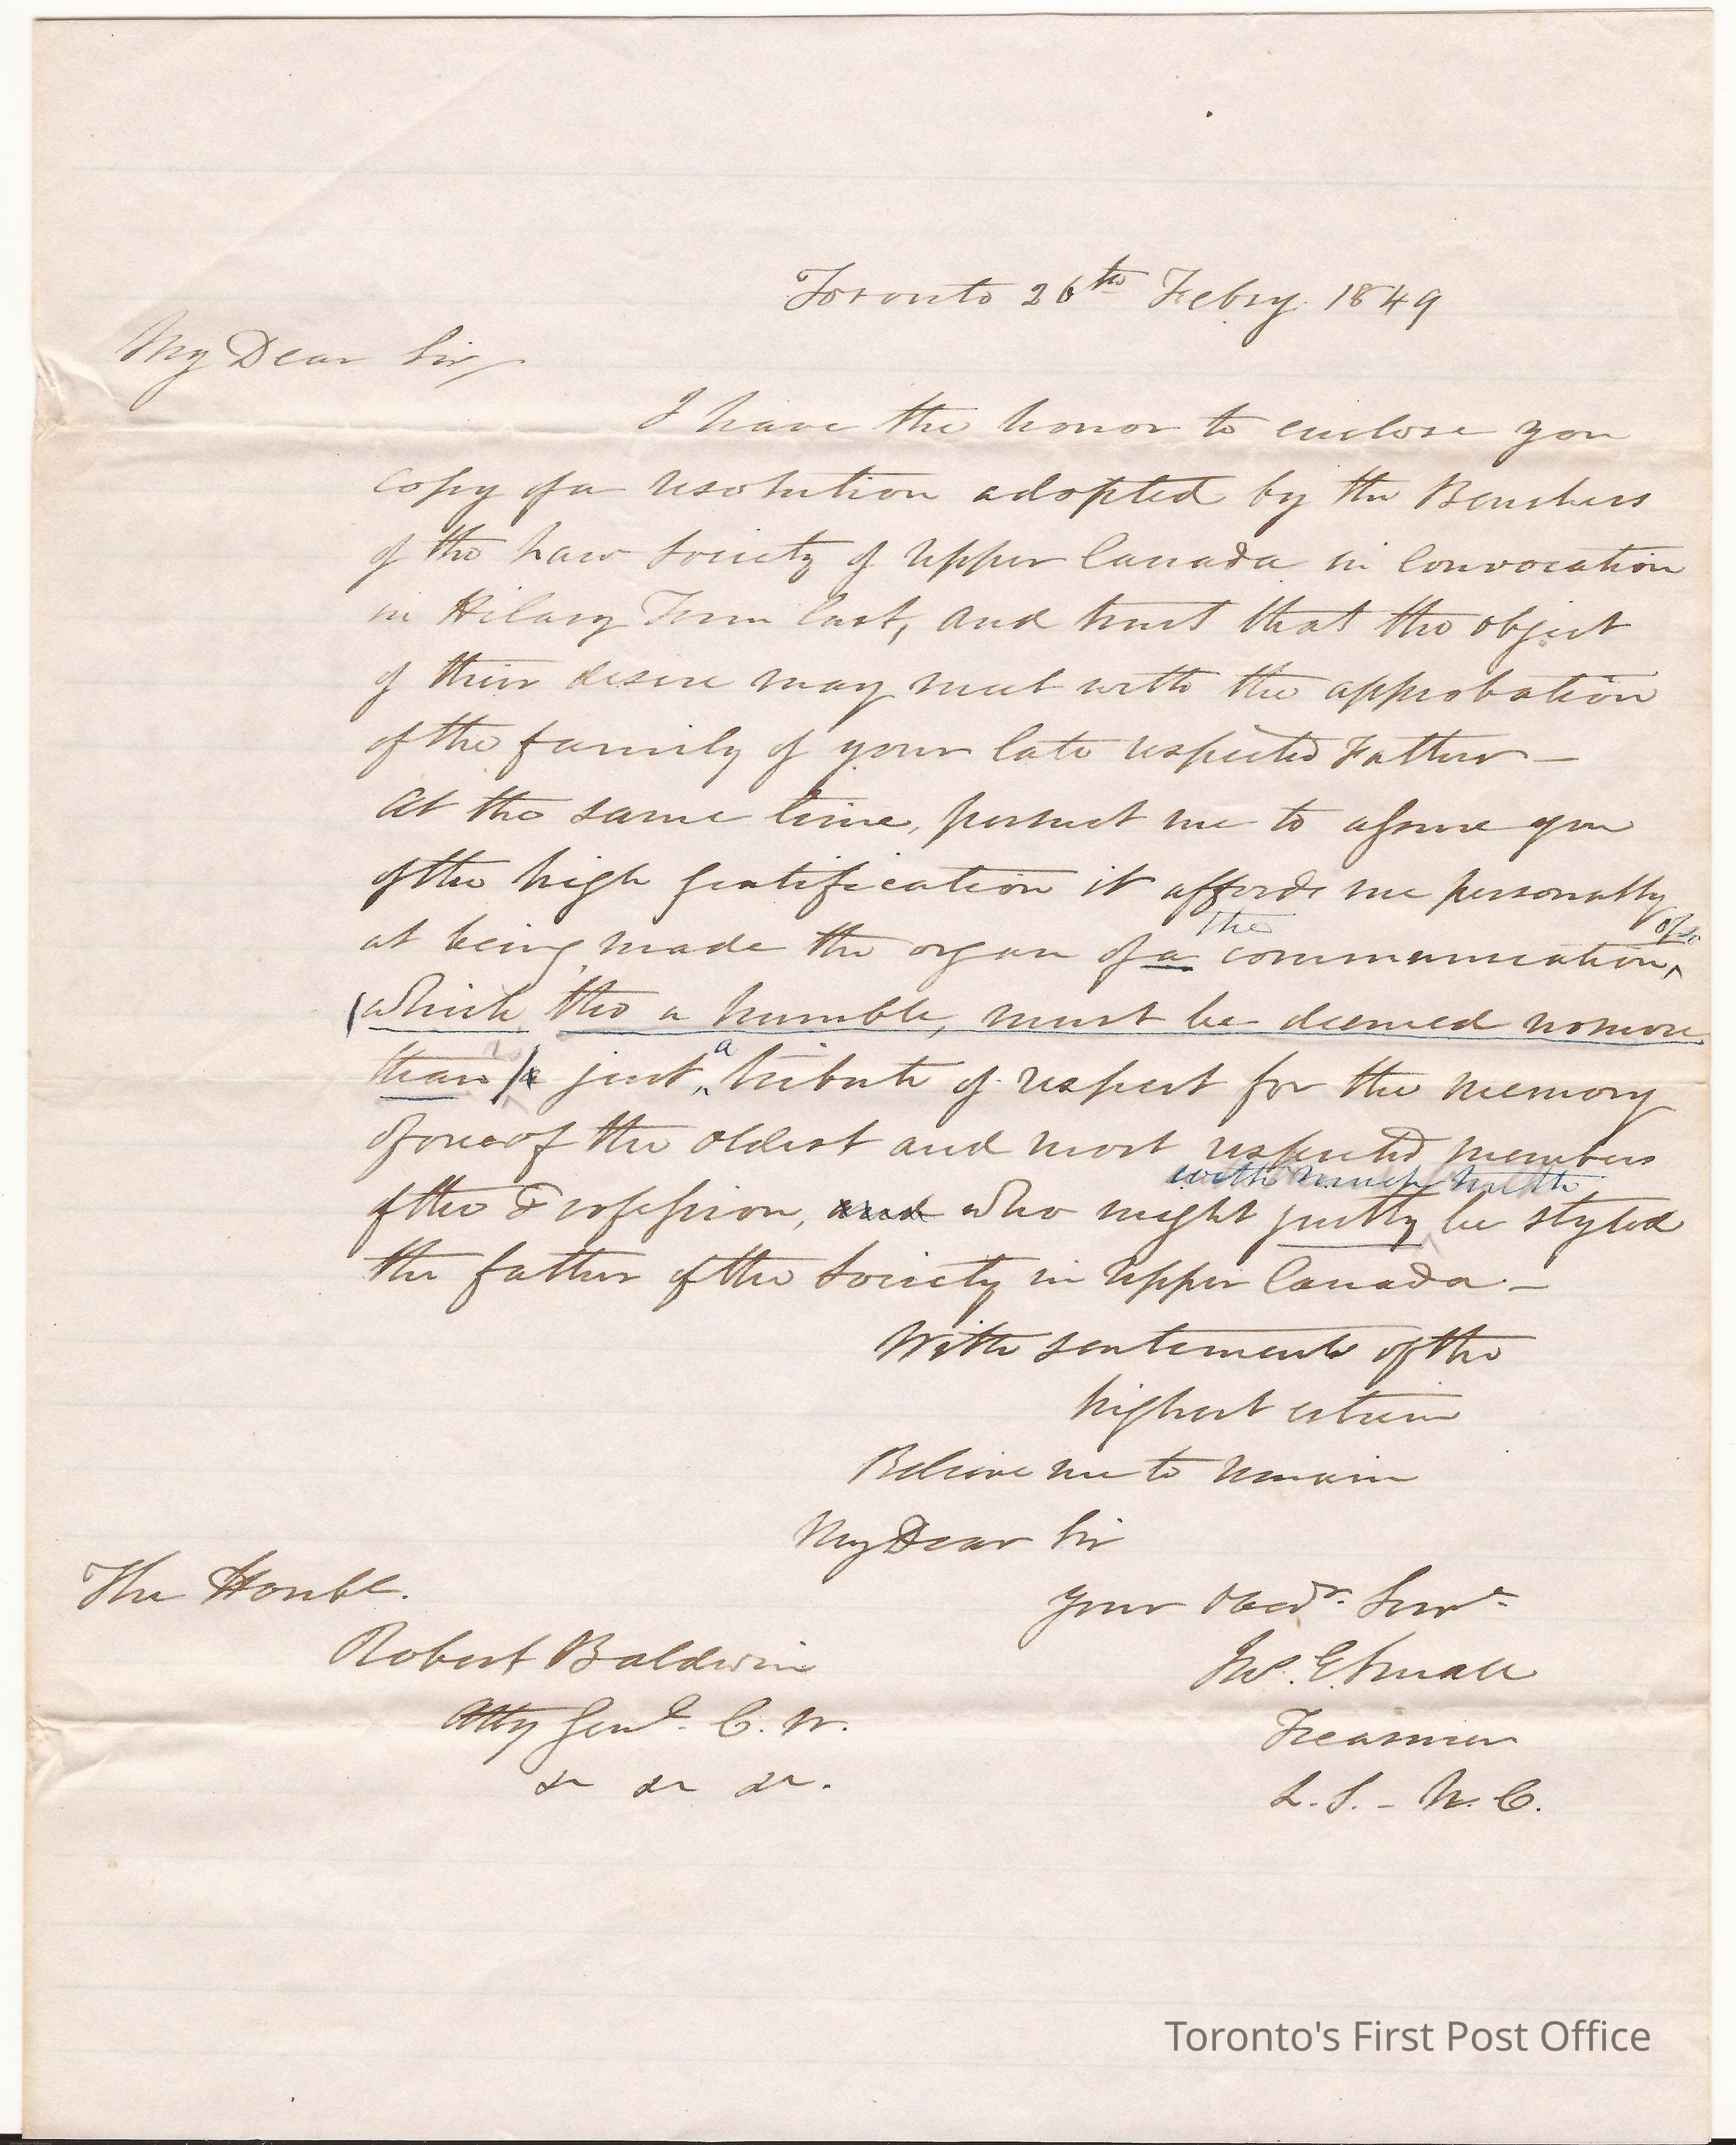 Toronto 26th Febry. 1849
My Dear Sir,
I have the honor to enclose you
copy of a resolution adopted by the Benchers
of the Law Society of Upper Canada in Convocation
in Hilary Term last, and trust that the object
of their desire may meet with the approbation
of the family of your late respected Father —
At the same time, permit me to assure you
of the high gratification it affords me personally
the of so
at being made the organ of a communication,
(which tho a humble, must be deemed no more
a
than a just tribute of respect for the memory
of one of the oldest and most respected members
with much truth
of the Profession, and who might justly be styled
the father of the Society in Upper Canada —
With sentements of the
highest esteem
Believe me to remain
My Dear Sir
The Honble.
your Obedt. Servt.
Robert Baldwin
Jas. E. Small
Atty Genl. C. W.
Treasurer
&c &c &c.
L. S. – U. C.
Toronto's First Post Office